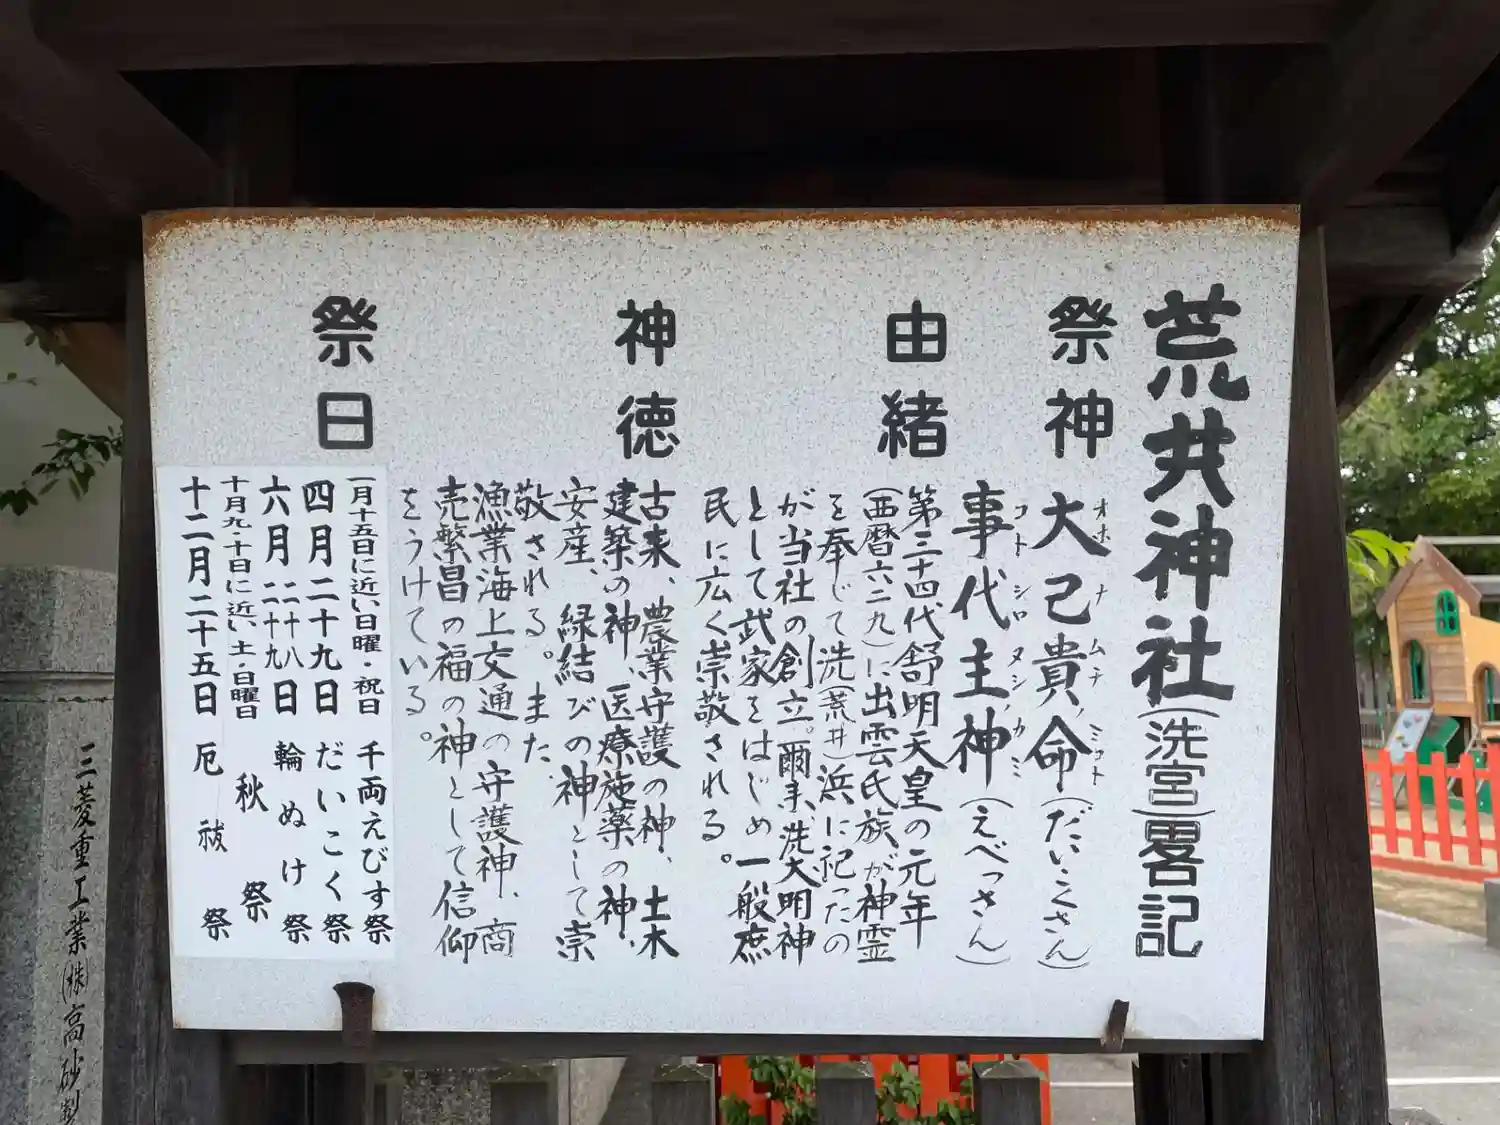 荒井神社(洗宮)畧記
祭神
大己貴命(だいこくさん)
オホナムチノミコト
事代主神(えべっさん)
コトシロヌシノカミ
由緒
第三十四代舒明天皇の元年
(西暦六二九)に出雲氏族が神霊
を奉じて洗(荒井)浜に祀ったの
が当社の創立。爾来、洗大明神
として武家をはじめ一般庶
民に広く崇敬される。
神徳
古来、農業守護の神、土木
建築の神、医療施薬の神、
安産、縁結びの神として崇
敬される。また
漁業海上交通の守護神、商
売繁昌の福の神として信仰
をうけている。
祭日
一月十五日に近い日曜・祝日 千両えびす祭
四月二十九日 だいこく祭
六月二十八二十九日 輪ぬけ祭
十月九・十日に近い土・日曜日 秋祭
十二月二十五日 厄祓祭
三菱重工業㈱高砂製